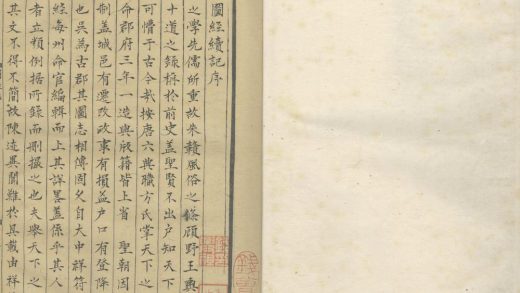 圖經續記序
之學先儒所重故朱贛風俗之條顧野王輿
十道之錄稱於前史蓋聖賢不出戶知天下
可懵于古今哉按唐六典職方氏掌天下之
命郡府三年一造與版籍皆上省 聖朝因
制蓋城邑有遷改政事有損益戶口有登降
也吳為古郡其圖志相傳固久自大中祥符
經每州命官編輯而上其詳畧蓋係乎其人
者立類例據所錄而刪撮之也夫舉天下之
其文不得不簡故陳迹異聞難於具載由祥